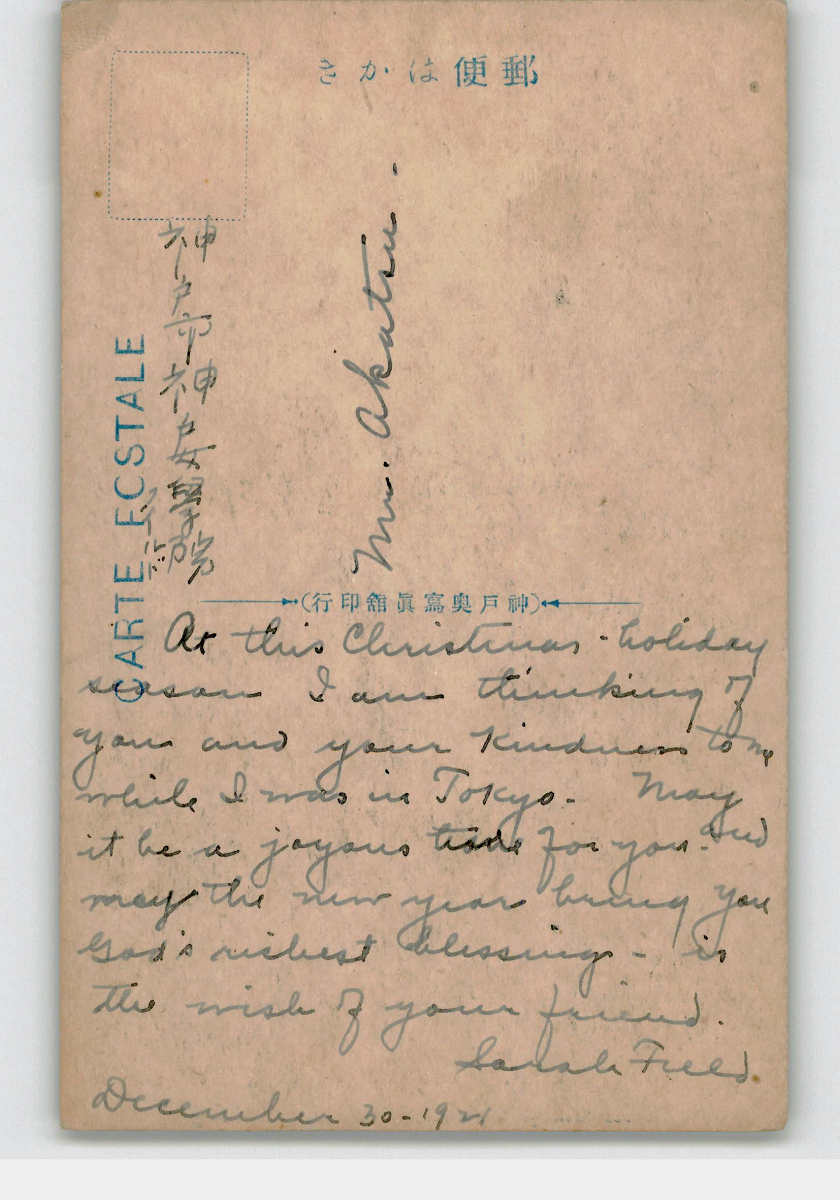 きかは便郵
神戸市神戸女學院
CARTE ECSTALE
Mr. Akatsu.
(神戸奥寫眞舘印行)
At this Christmas-holiday
season I am thinking of
you and your kindness to me
while I was in Tokyo. May
it be a joyous time for you and
may the new year bring you
God's richest blessing - is
the wish of your friend.
Sarah Field
December 30-1921